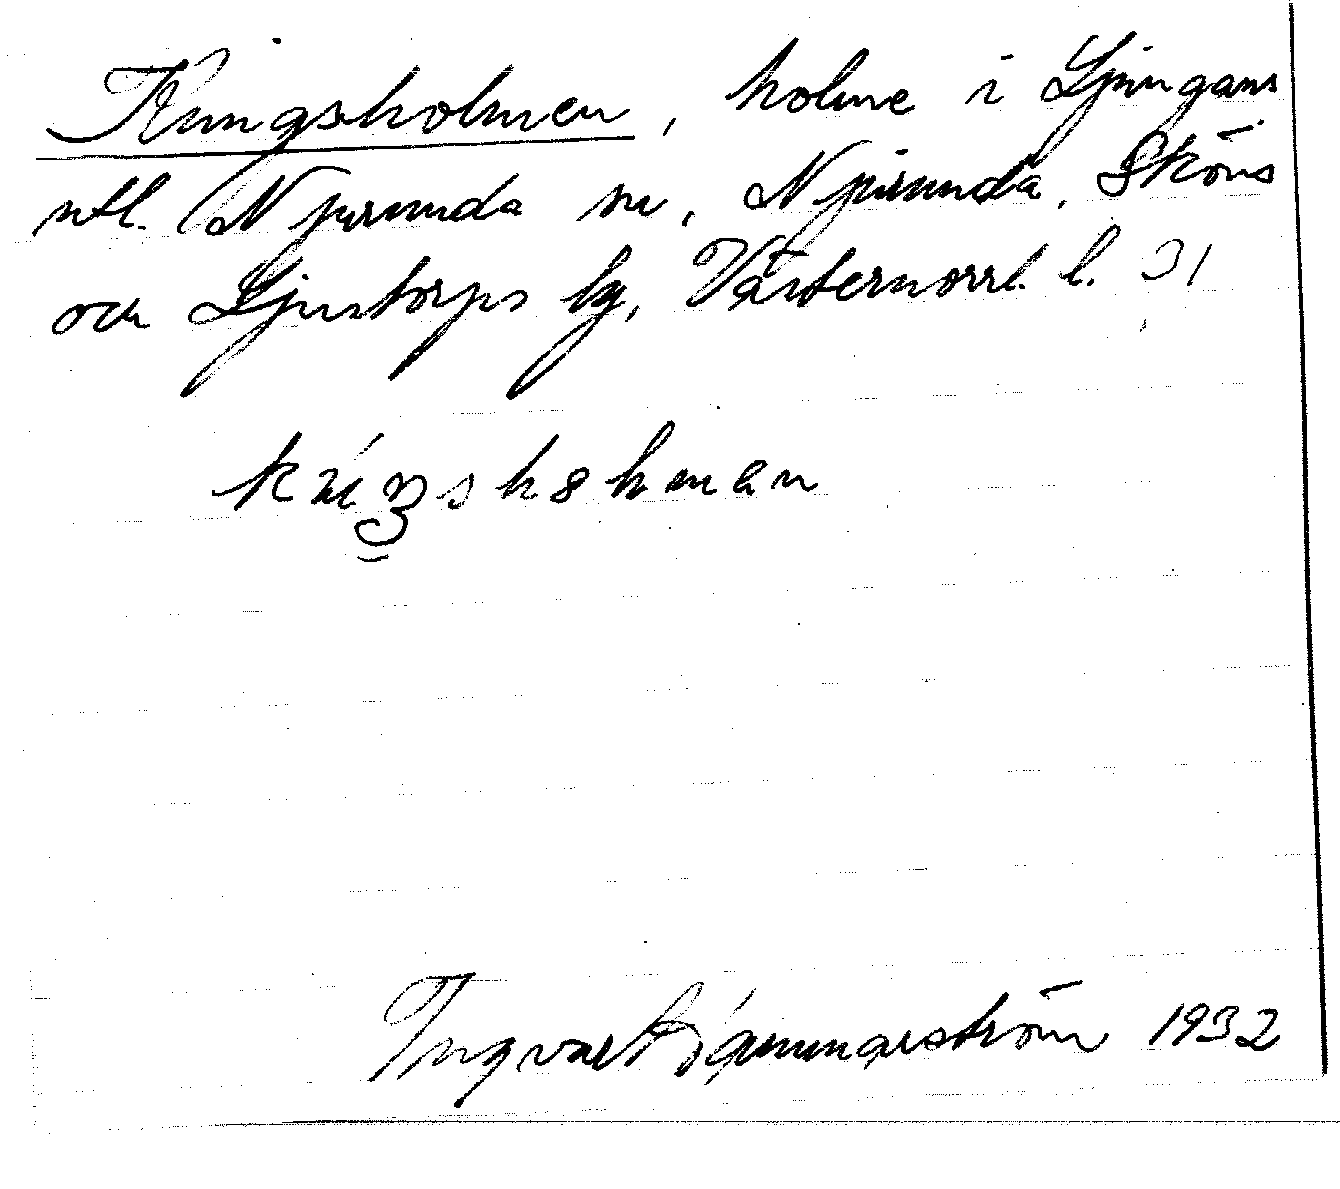 Kungsholmen, holme i Ljungans
utl. Njurunda sn, Njurunda, Sköns
och Ljustorps tg, Västernorrl. l. 31
Ingvar Hammarström 1932